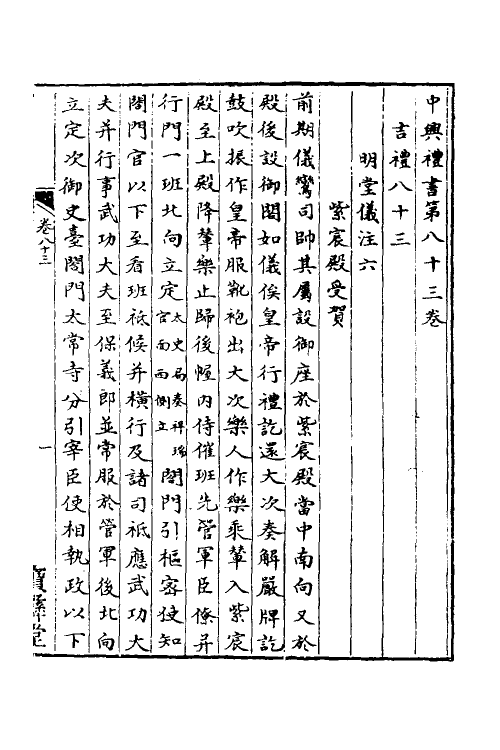 中興禮書第八十三卷
吉禮八十三
明堂儀注六
紫宸殿受賀
前期儀鸞司帥其屬設御座於紫宸殿當中南向又於
殿後設御閤如儀俟皇帝行禮訖還大次奏解嚴牌訖
鼓吹振作皇帝服靴袍出大次樂人作樂乘輦入紫宸
殿至上殿降輦樂止歸後幄內侍催班先管軍臣僚并
行門一班北向立定太史局奏祥瑞官面西側立閤門引樞密使知
閤門官以下至看班祗候并橫行及諸司祗應武功大
夫并行事武功大夫至保義郎並常服於管軍後北向
立定次御史臺閤門太常寺分引宰臣使相執政以下
卷八十三
一
寶彝堂